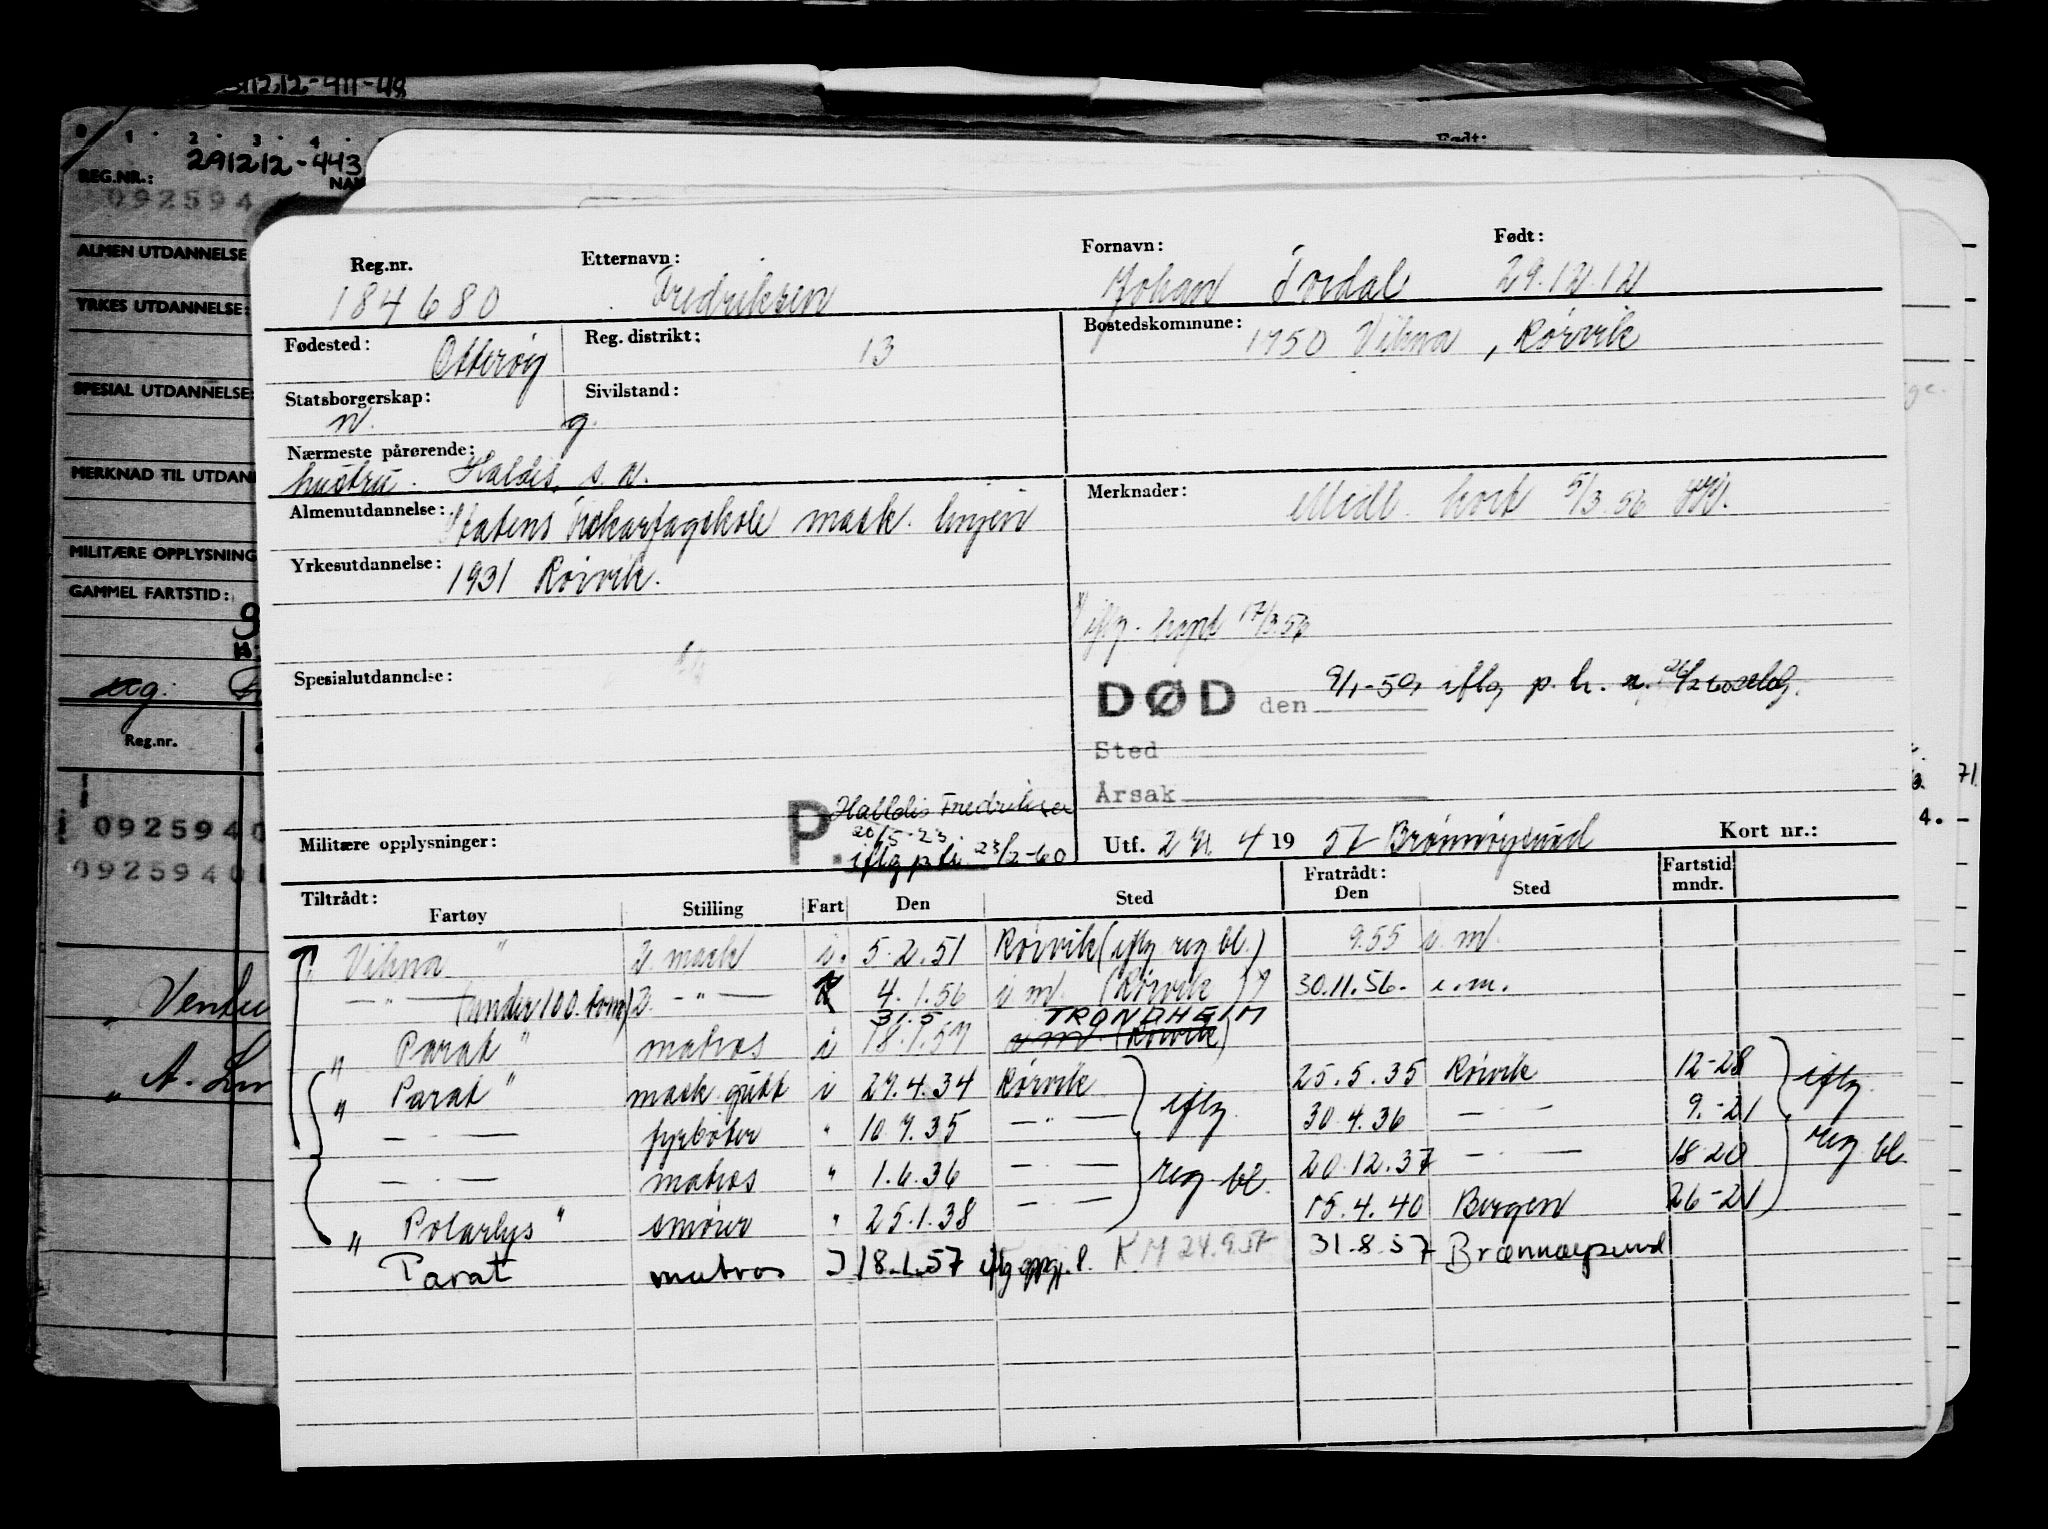 31212-911-48
0 1 . 2 . 3 . 4 .
291212-443
REG.NR.:
NAV
092594
Født:
ALMEN UTDANNELSE
YRKES UTDANNELSE:
SPESIAL UTDANNELSE:
MERKNAD TIL UTDAN
MILITÆRE OPPLYSNING
GAMMEL FARTSTID:
Reg.nr.
0925940
09259401
" A.
71.
4.
Reg.nr. Etternavn: Fornavn: Født:
184680 Fredriksen Johan Tordal 29.12.12
Fødested: Otterøy Reg. distrikt: 13 Bostedskommune: 1750 Vikna, Rørvik
Statsborgerskap: n. Sivilstand: g.
Nærmeste pårørende:
hustru. Haldis, s.a.
Almenutdannelse: Statens Fiskarfagskole mask. linjen Merknader: Midl. kort 5/3.56
Yrkesutdannelse: 1931 Rørvik.
iflg. 17/3.56
Spesialutdannelse:
DØD den 9/1-59, iflg p. h. n.
Sted
Årsak
P. Halldis Fredriksen
20/5-23.
iflg p.h. 23/2-60
Militære opplysninger: Utf. 2 4 19 57 Brønnøysund Kort nr.:
Tiltrådt: Fartøy Stilling Fart Den Sted Fratrådt: Den Sted Fartstid mndr.
" Vikna " 2. mask i. 5.2.51 Rørvik (iflg reg bl.) 9.55 u.m.
— " — (under 100 tonn) 2. — " — 4.1.56 u m. (Rørvik) 30.11.56. u.m.
31.5 TRONDHEIM
" Parat " matros i 18.1.57 u m. (Rørvik)
" Parat " mask. gutt i 27.4.34 Rørvik 25.5.35 Rørvik 12-28
— " — fyrbøter " 10.7.35 — " — iflg. 30.4.36 — " — 9.-21 iflg.
— " — matros " 1.6.36 — " — reg. bl. 20.12.37 — " — 18 20 reg bl.
" Polarlys " smører " 25.1.38 — " — 15.4.40 Bergen 26-21
Parat matros 18.1.57 iflg oppgj. l. K.M 24.9.57 31.8.57 Brønnøysund